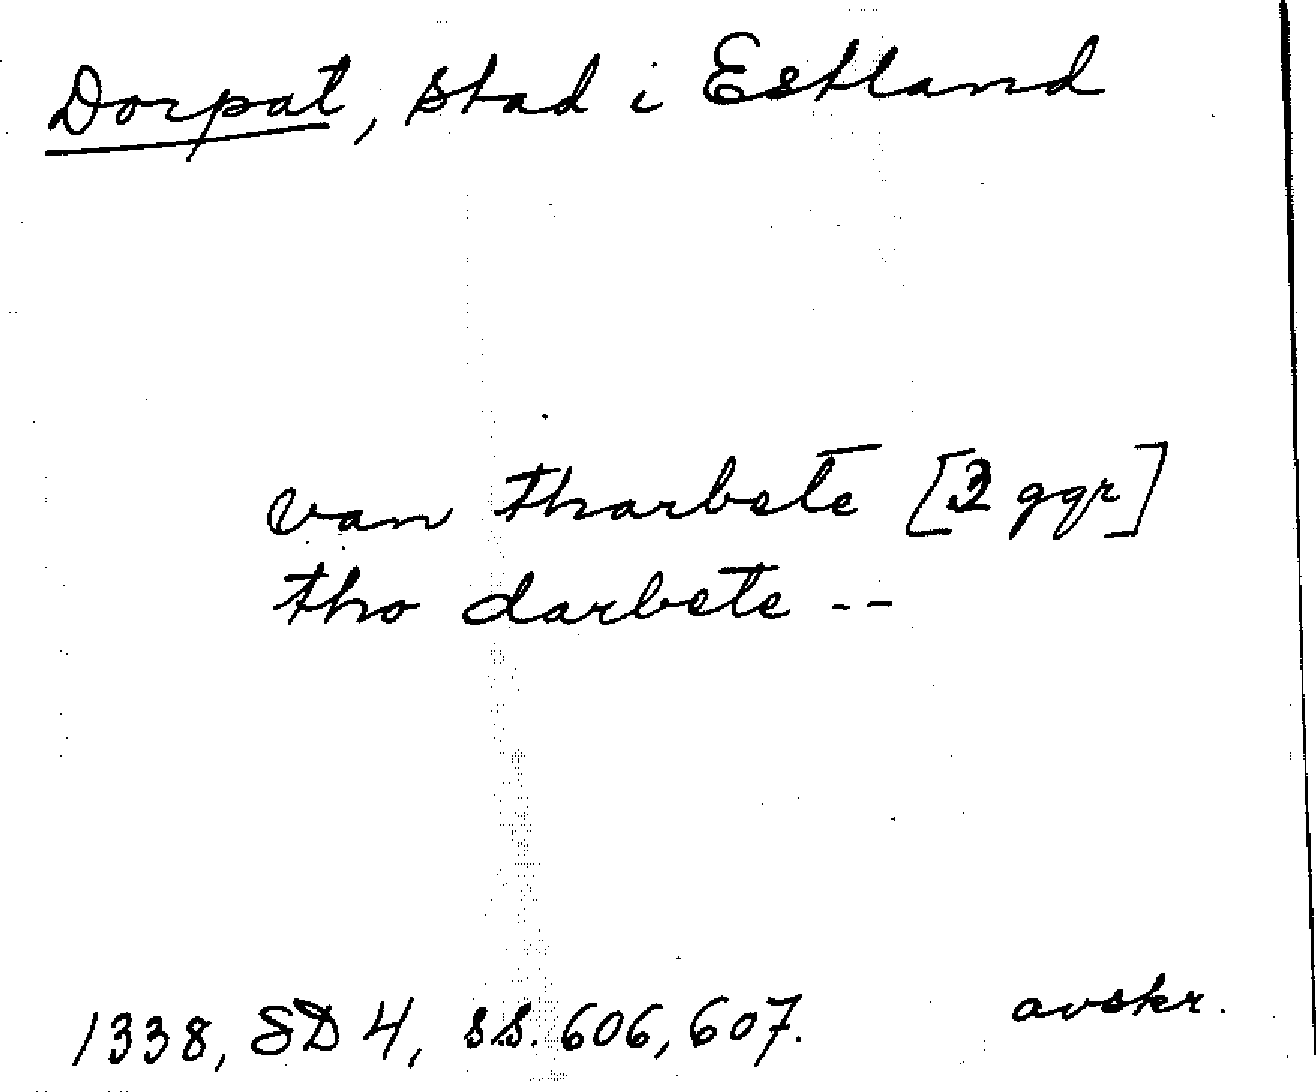 Dorpat, stad i Estland
van tharbete [3 ggr]
tho darbete --
1338, SD 4, ss. 606, 607. avskr.